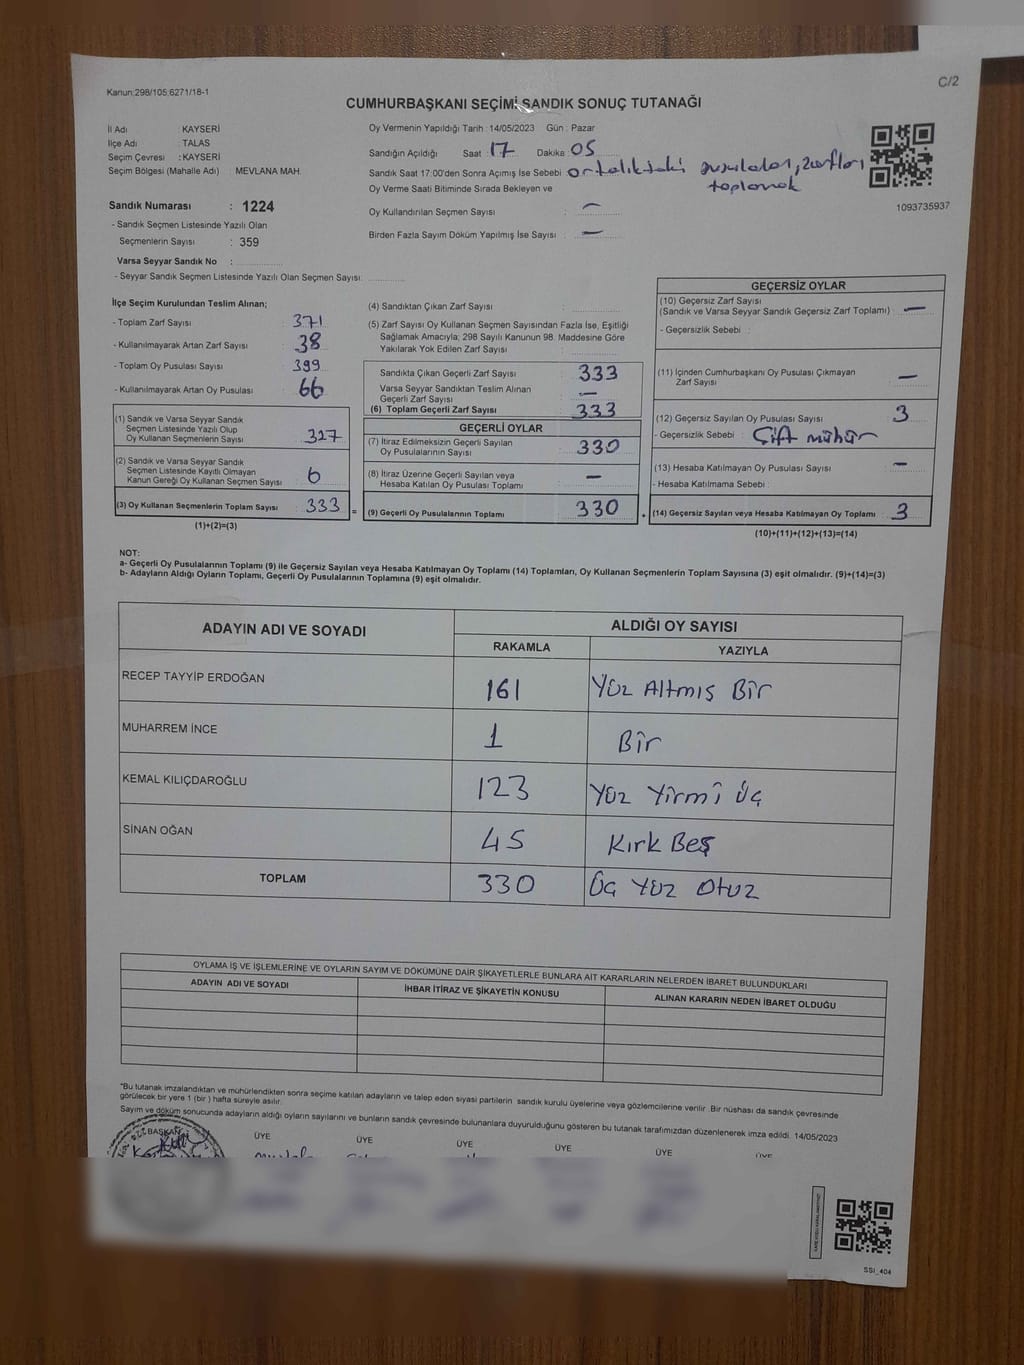 C/2
Kanun:298/105,6271/18-1
CUMHURBAŞKANI SEÇİMİ SANDIK SONUÇ TUTANAĞI
İl Adı KAYSERİ
İlçe Adı : TALAS
Seçim Çevresi : KAYSERİ
Seçim Bölgesi (Mahalle Adı) : MEVLANA MAH.
Sandık Numarası : 1224
- Sandık Seçmen Listesinde Yazılı Olan
Seçmenlerin Sayısı : 359
Varsa Seyyar Sandık No :
- Seyyar Sandık Seçmen Listesinde Yazılı Olan Seçmen Sayısı:
Oy Vermenin Yapıldığı Tarih : 14/05/2023 Gün : Pazar
Sandığın Açıldığı Saat : 17 Dakika : 05
Sandık Saat 17:00'den Sonra Açımış İse Sebebi : ortalıktaki pusulaları, zarfları
toplamak
Oy Verme Saati Bitiminde Sırada Bekleyen ve
Oy Kullandırılan Seçmen Sayısı : —
Birden Fazla Sayım Döküm Yapılmış İse Sayısı : —
1093735937
İlçe Seçim Kurulundan Teslim Alınan;
- Toplam Zarf Sayısı : 371
- Kullanılmayarak Artan Zarf Sayısı : 38
- Toplam Oy Pusulası Sayısı : 399
- Kullanılmayarak Artan Oy Pusulası : 66
(1) Sandık ve Varsa Seyyar Sandık
Seçmen Listesinde Yazılı Olup
Oy Kullanan Seçmenlerin Sayısı : 327
(2) Sandık ve Varsa Seyyar Sandık
Seçmen Listesinde Kayıtlı Olmayan
Kanun Gereği Oy Kullanan Seçmen Sayısı : 6
(3) Oy Kullanan Seçmenlerin Toplam Sayısı : 333
(1)+(2)=(3)
(4) Sandıktan Çıkan Zarf Sayısı :
(5) Zarf Sayısı Oy Kullanan Seçmen Sayısından Fazla İse, Eşitliği
Sağlamak Amacıyla; 298 Sayılı Kanunun 98. Maddesine Göre
Yakılarak Yok Edilen Zarf Sayısı :
Sandıkta Çıkan Geçerli Zarf Sayısı : 333
Varsa Seyyar Sandıktan Teslim Alınan
Geçerli Zarf Sayısı : —
(6) Toplam Geçerli Zarf Sayısı : 333
GEÇERLİ OYLAR
(7) İtiraz Edilmeksizin Geçerli Sayılan
Oy Pusulalarının Sayısı : 330
(8) İtiraz Üzerine Geçerli Sayılan veya
Hesaba Katılan Oy Pusulası Toplamı : —
= (9) Geçerli Oy Pusulalarının Toplamı : 330
GEÇERSİZ OYLAR
(10) Geçersiz Zarf Sayısı
(Sandık ve Varsa Seyyar Sandık Geçersiz Zarf Toplamı) : —
- Geçersizlik Sebebi :
(11) İçinden Cumhurbaşkanı Oy Pusulası Çıkmayan
Zarf Sayısı : —
(12) Geçersiz Sayılan Oy Pusulası Sayısı : 3
- Geçersizlik Sebebi : Çift mühür
(13) Hesaba Katılmayan Oy Pusulası Sayısı : —
- Hesaba Katılmama Sebebi :
+ (14) Geçersiz Sayılan veya Hesaba Katılmayan Oy Toplamı : 3
(10)+(11)+(12)+(13)=(14)
NOT:
a- Geçerli Oy Pusulalarının Toplamı (9) ile Geçersiz Sayılan veya Hesaba Katılmayan Oy Toplamı (14) Toplamları, Oy Kullanan Seçmenlerin Toplam Sayısına (3) eşit olmalıdır. (9)+(14)=(3)
b- Adayların Aldığı Oyların Toplamı, Geçerli Oy Pusulalarının Toplamına (9) eşit olmalıdır.
ADAYIN ADI VE SOYADI ALDIĞI OY SAYISI
RAKAMLA YAZIYLA
RECEP TAYYİP ERDOĞAN 161 Yüz Altmış Bir
MUHARREM İNCE 1 Bir
KEMAL KILIÇDAROĞLU 123 Yüz Yirmi Üç
SİNAN OĞAN 45 Kırk Beş
TOPLAM 330 Üç Yüz Otuz
OYLAMA İŞ VE İŞLEMLERİNE VE OYLARIN SAYIM VE DÖKÜMÜNE DAİR ŞİKAYETLERLE BUNLARA AİT KARARLARIN NELERDEN İBARET BULUNDUKLARI
ADAYIN ADI VE SOYADI İHBAR İTİRAZ VE ŞİKAYETİN KONUSU ALINAN KARARIN NEDEN İBARET OLDUĞU
*Bu tutanak imzalandıktan ve mühürlendikten sonra seçime katılan adayların ve talep eden siyasi partilerin sandık kurulu üyelerine veya gözlemcilerine verilir. Bir nüshası da sandık çevresinde
görülecek bir yere 1 (bir ) hafta süreyle asılır.
Sayım ve döküm sonucunda adayların aldığı oyların sayılarını ve bunların sandık çevresinde bulunanlara duyurulduğunu gösteren bu tutanak tarafımızdan düzenlenerek imza edildi. 14/05/2023
BAŞKAN ÜYE ÜYE ÜYE ÜYE ÜYE ÜYE
SSI_404